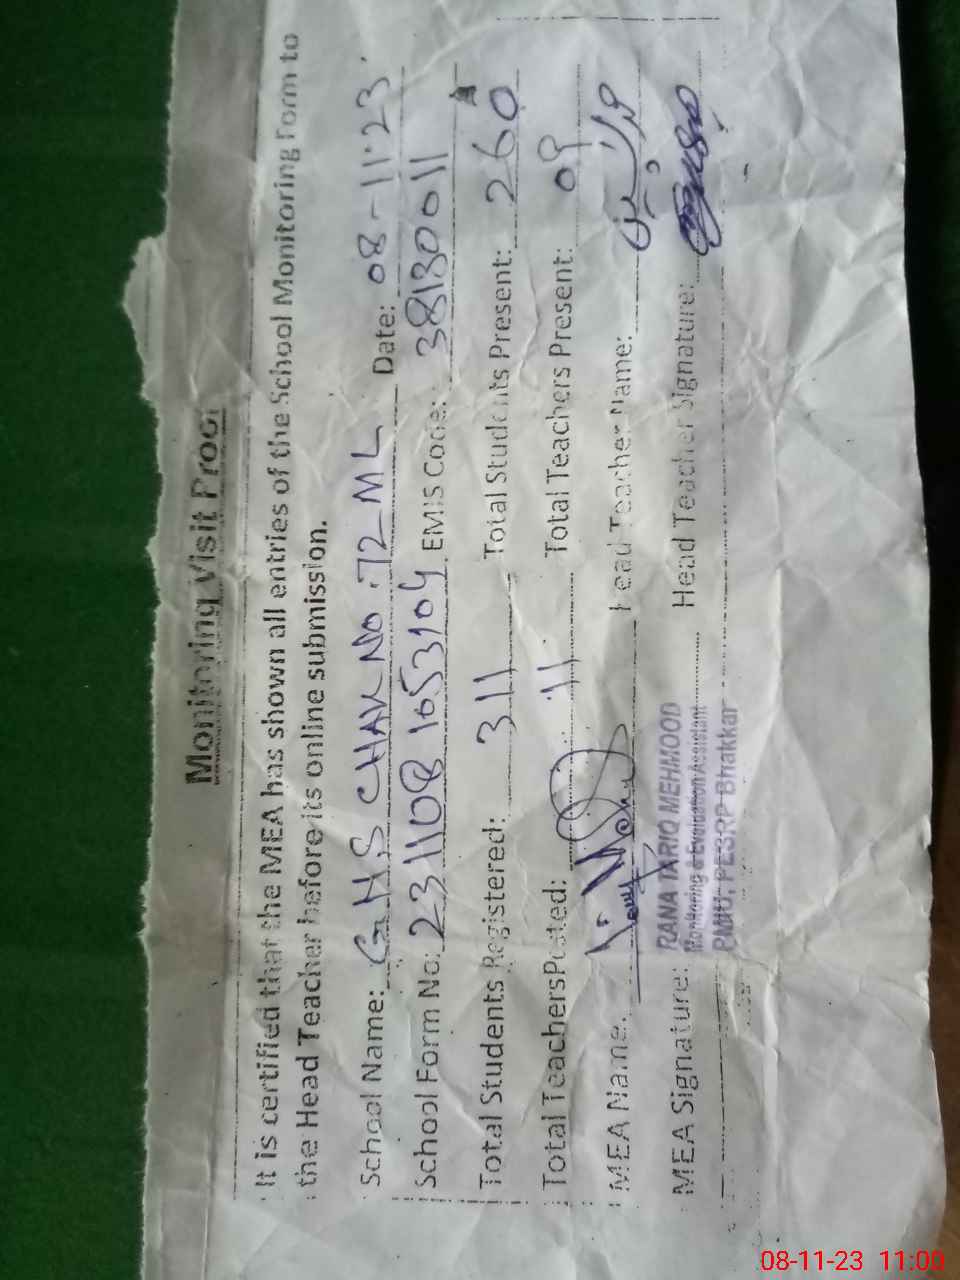 Monitoring Visit Proof
It is certified that the MEA has shown all entries of the School Monitoring Form to
the Head Teacher before its online submission.
School Name: GHS CHAK NO. 72 ML Date: 08-11-23
School Form No: 231108 1653104 EMIS Code: 38130011
Total Students Registered: 311 Total Students Present: 260
Total Teachers Posted: 11 Total Teachers Present: 09
MEA Name: Head Teacher Name:
MEA Signature: Head Teacher Signature:
RANA TARIQ MEHMOOD
Monitoring & Evaluation Assistant
PMIU, PESRP Bhakkar
08-11-23 11:00